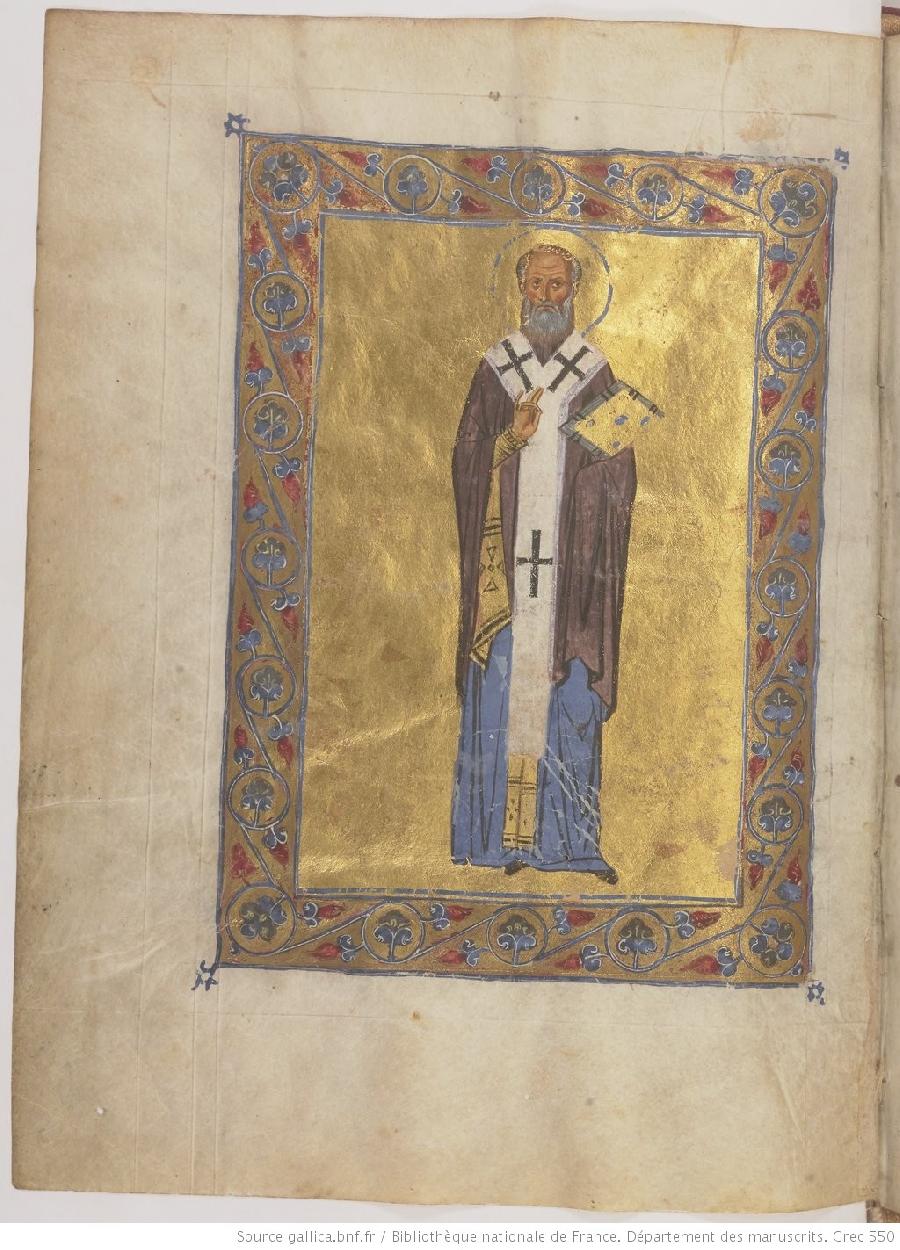 Source gallica.bnf.fr / Bibliothèque nationale de France. Département des manuscrits. Crec 550